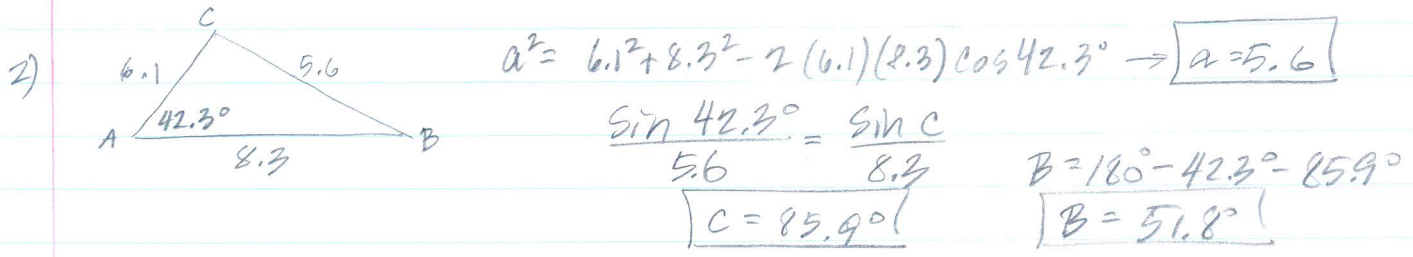 2)
C
6.1
5.6
42.3°
A
B
8.3
a² = 6.1² + 8.3² - 2(6.1)(8.3) cos 42.3° → a = 5.6
sin 42.3° / 5.6 = sin C / 8.3
C = 85.9°
B = 180° - 42.3° - 85.9°
B = 51.8°